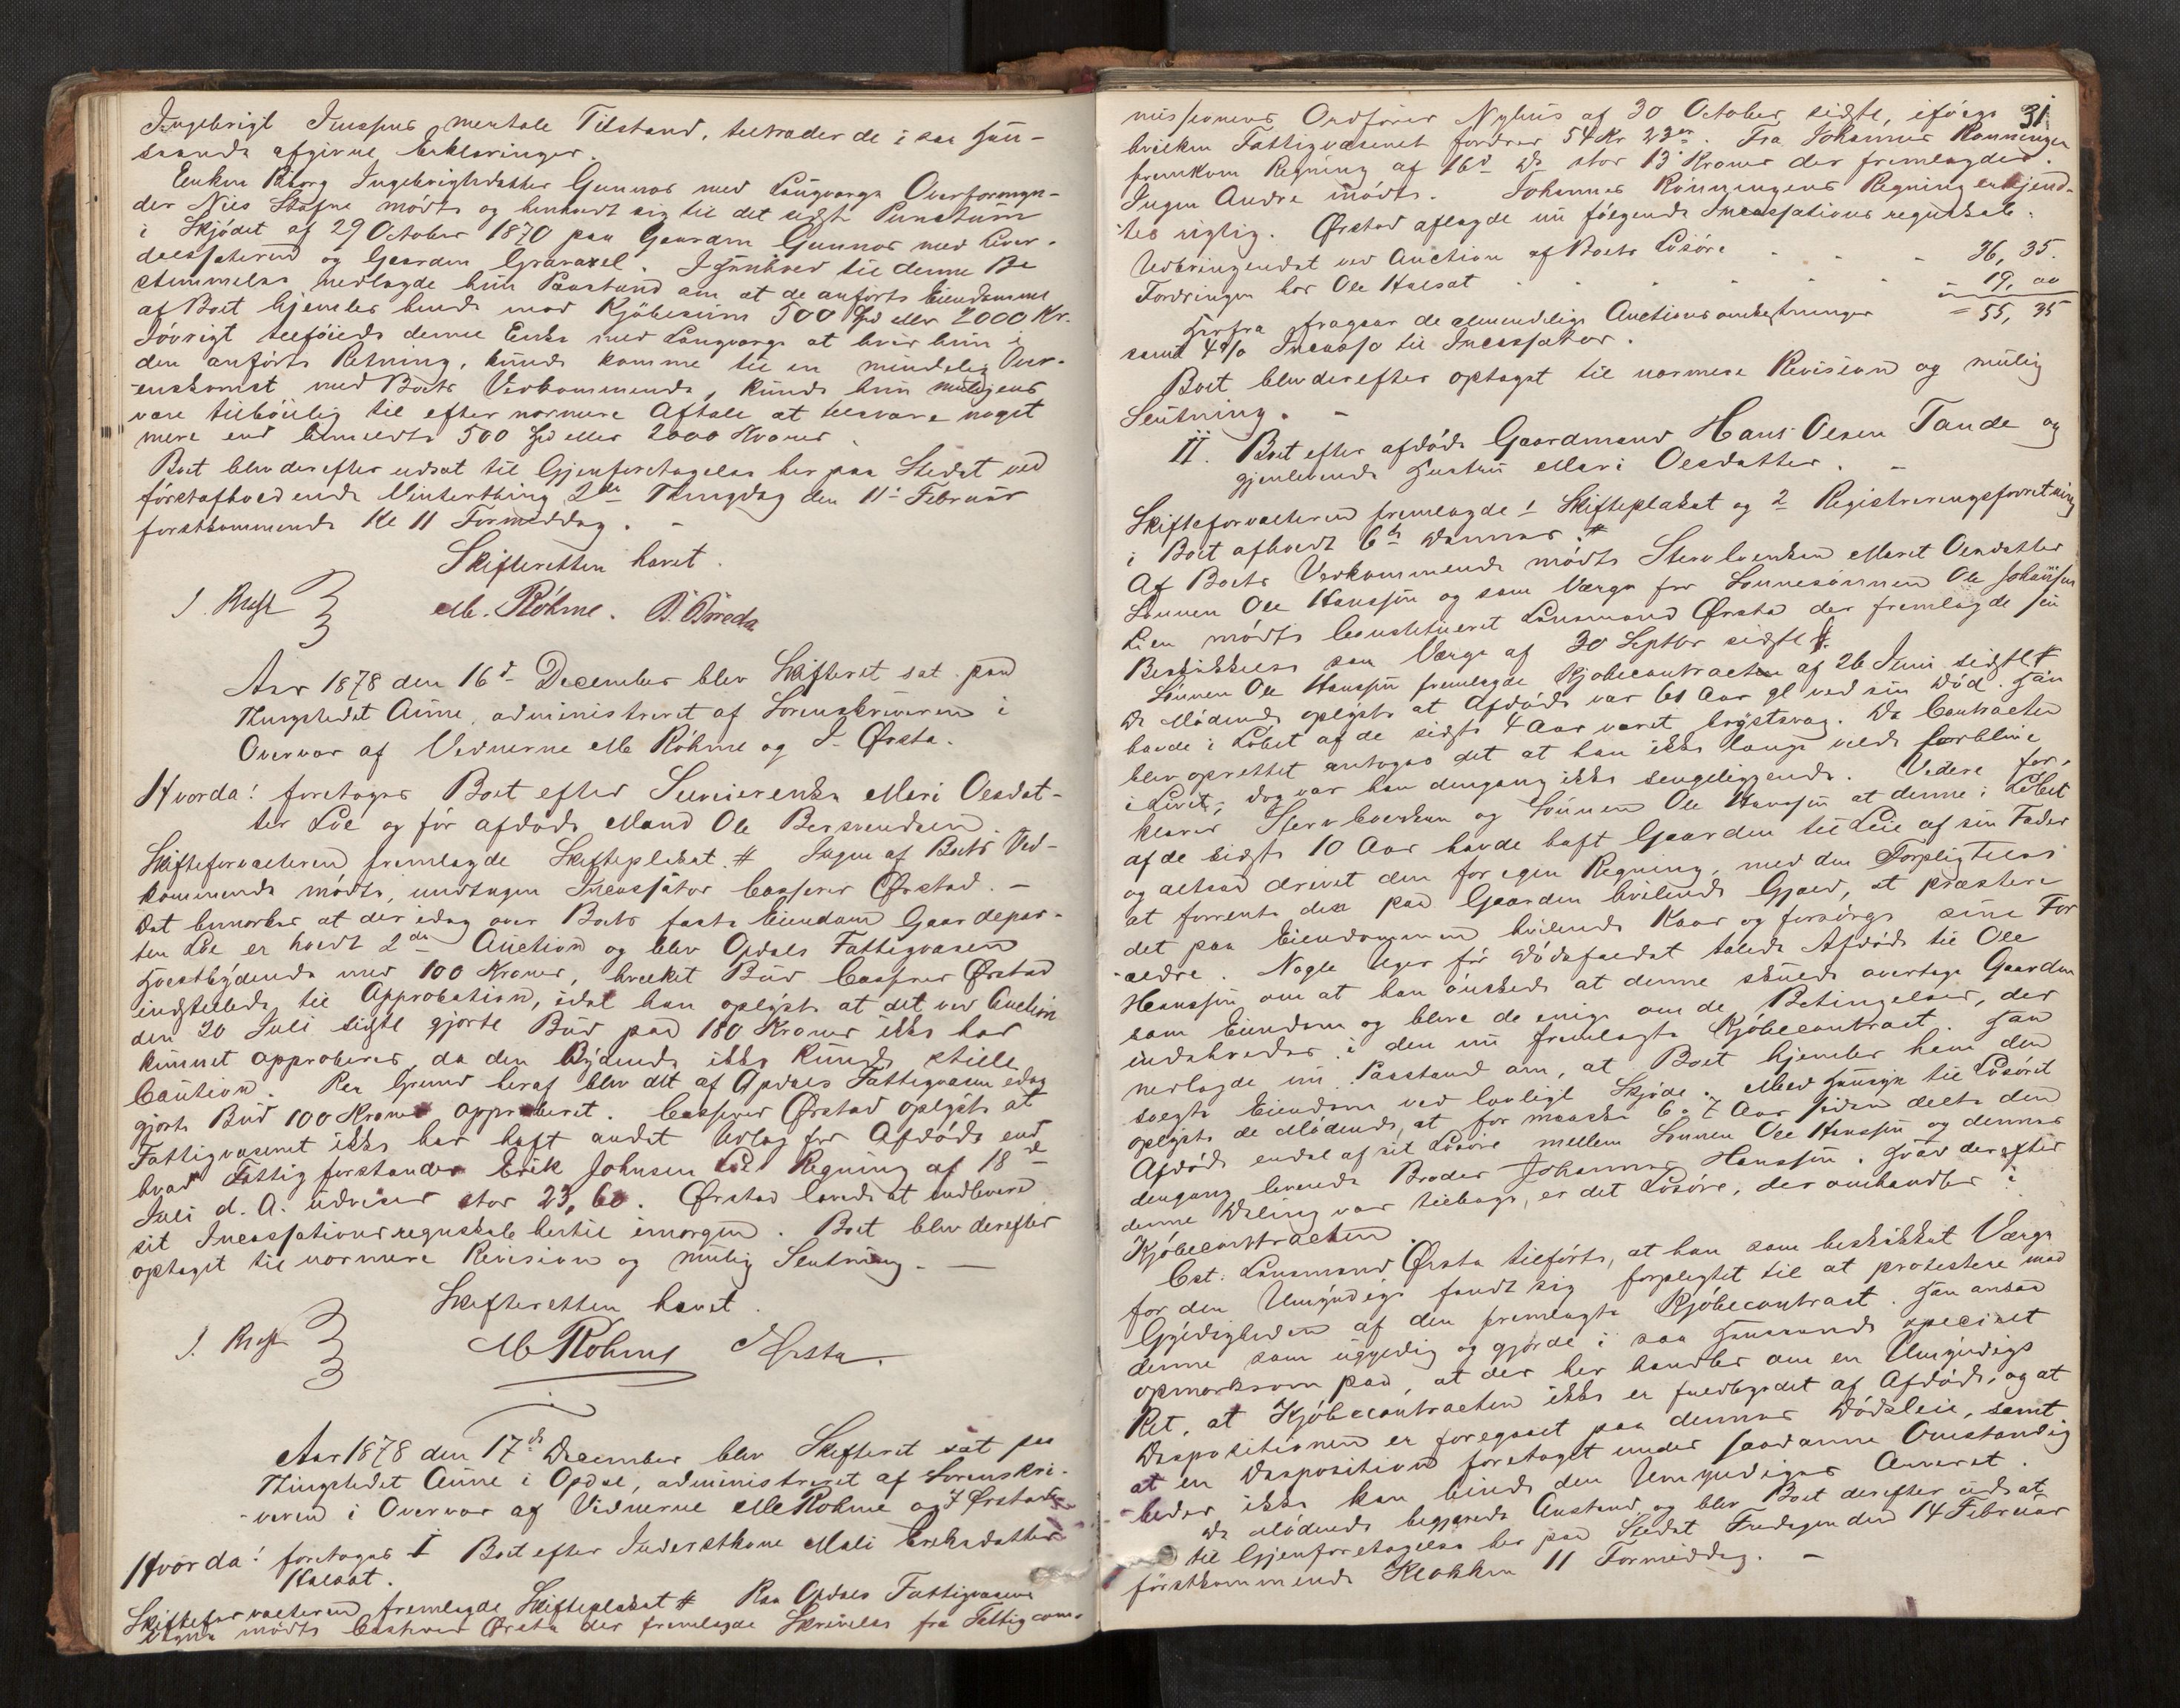 Ingebrigt Jenssens mentale Tilstand, tiltræder de i saa Hen-
seende afgivne Erklæringer.
Enken Ingebrigtsdatter Gunnes med Laugværge Overformyn-
der Nils Stafne mødte og henholdt sig til det sidste Punctum
i Skjødet af 29 October 1870 paa Gaarden Gunnes med Lever-
dalssæteren og Gaarden Graraxel. I Henhold til denne Be
stemmelse nedlagde hun Paastand om at de anførte Eiendomme
af Boet hjemles hende mod Kjøbesum 500 Spd eller 2000 Kr.
Iøvrigt tilføiede denne Enke med Laugværge at hvis hun i
den anførte Retning, kunde komme til en mindelig Over-
enskomst med Boets Vedkommende, kunde hun muligens
være tilbøielig til efter nærmere Aftale at tilsvare noget
mere end bemeldte 500 Spd eller 2000 Kroner.
Boet blev derefter udsat til Gjenforetagelse her paa Stedet ved
førstafholdende Vinterthing 2den Thingdag den 11te Februar
førstkommende Kl 11 Formiddag. -
Skifteretten hævet.
M. Röhme.
Aar 1878 den 16de December blev Skifteret sat paa
Thingstedet Aune, administreret af Sorenskriveren i
Overvær af Vidnerne M Röhme og J. Ørsta.
Hvorda! foretoges Boet efter Enke Mari Olsdat-
ter Loe og før afdøde Mand Ole Bersvendsen.
Skifteforvalteren fremlagde Skifteplakat # Ingen af Boets Ved-
kommende mødte, undtagen Incassator Casserer Ørstad. -
Det bemærkes at der idag over Boets faste Eiendom Gaardepar-
ten Loe er holdt 2den Auction og blev Opdals Fattigvæsen
Høistbydende med 100 Kroner, hvilket Bud Casserer Ørstad
indstillede til Approbation, idet han oplyste at det ved Auction
den 20 Juli sidste gjorte Bud paa 180 Kroner ikke har
kunnet approberes, da den Bydende ikke kunde stille
Caution. Paa Grund heraf blev det af Opdals Fattigvæsen idag
gjorte Bud 100 Kroner approberet. Casserer Ørstad oplyste at
Fattigvæsenet ikke har haft andet Udlæg for Afdøde end
hvad Fattigforstander Erik Johnsen Loe Regning af 18de
Juli d. A. udviser stor 23,60. Ørstad lovede at indlevere
sit Incassationsregnskab hertil imorgen. Boet blev derefter
optaget til nærmere Revision og mulig Slutning. -
Skifteretten hævet.
M Röhme J Ørsta.
Aar 1878 den 17de December blev Skifteret sat paa
Thingstedet Aune i Opdal, administreret af Sorenskri-
veren i Overvær af Vidnerne M Röhme og J Ørstad
Hvorda! foretoges I Boet efter Inderstkone Mali Eriksdatter
Halsæt.
Skifteforvalteren fremlagde Skifteplakat # Paa Opdals Fattigvæsens
Vegne mødte Casserer Ørsta der fremlagde Skrivelse fra Fattigcom-
31
missionens Ordfører Nyhus af 30 October sidste, ifølge
hvilken Fattigvæsenet fordrer 54 Kr 23 ør. Fra Johannes Rønningen
fremkom Regning af 16de ds stor 13 Kroner der fremlagdes.
Ingen Andre mødte. Johannes Rønningens Regning erkjend-
tes rigtig. Ørstad aflagde nu følgende Incassationsregnskab:
Udbringendet ved Auction af Boets Løsøre - - - 36, 35.
Fordringen hos Ole Halsæt - - - - 19, 00
= 55, 35
Herfra fragaar de almindelige Auctionsomkostninger
samt 4% Incasso til Incassator.
Boet blev derefter optaget til nærmere Revision og mulig
Slutning. -
II. Boet efter afdøde Gaardmand Hans Olsen Tande og
gjenlevende Hustru Mari Olsdatter. -
Skifteforvalteren fremlagde 1 Skifteplakat og 2 Registreringsforretning
i Boet afholdt 6te dennes. #
Af Boets Vedkommende mødte Stervboenken Marit Olsdatter
Sønnen Ole Hanssen og som Værge for Sønnesønnen Ole Johansen
Lien mødte Constitueret Lensmand Ørsta der fremlagde sin
Beskikkelse som Værge af 30 Septbr sidste #.
Sønnen Ole Hanssen fremlagde Kjøbecontracten af 26 Juni sidste #
De Mødende oplyste at Afdøde var 61 Aar gl ved sin Død. Han
havde i Løbet af de sidste 4 Aar været brystsvag. Da Contracten
blev oprettet antoges det at han ikke længe vilde forblive
i Livet, dog var han dengang ikke sengeliggende. Videre for-
klarer Stervboenken og Sønnen Ole Hanssen at denne i Løbet
af de sidste 10 Aar havde haft Gaarden til Leie af sin Fader
og altsaa drevet den for egen Regning, med den Forpligtelse
at forrente den paa Gaarden hvilende Gjæld, at præstere
det paa Eiendommen hvilende Kaar og forsørge sine For
ældre. Nogle Uger før Dødsfaldet talede Afdøde til Ole
Hanssen om at han ønskede at denne skulde overtage Gaarden
som Eiendom og bleve de enige om de Betingelser, der
indeholdes i den nu fremlagte Kjøbecontract. Han
nedlagde nu Paastand om, at Boet hjemler ham den
solgte Eiendom ved lovligt Skjøde. Med Hensyn til Løsøret
oplyste de Mødende, at for maaske 6 a 7 Aar siden delte den
Afdøde endel af sit Løsøre mellem Sønnen Ole Hanssen og dennes
dengang levende Broder Johannes Hanssen. Hvad derefter
denne Deling var tilbage, er det Løsøre, der omhandles i
Kjøbecontracten.
Cst. Lensmand Ørsta tilførte, at han som beskikket Værge
for den Umyndige fandt sig forpligtet til at protestere mod
Gyldigheden af den fremlagte Kjøbecontract. Han ansaa
denne som ugyldig og gjorde i saa Henseende specielt
opmærksom paa, at der her handles om en Umyndigs
Ret, at Kjøbecontracten ikke er fuldbyrdet af Afdøde, og at
Dispositionen er foregaaet paa dennes Dødsleie, samt
at en Disposition foretaget under saadanne Omstændig
heder ikke kan binde den Umyndiges Arveret.
De Mødende begjærede Anstand og blev Boet derefter udsat
til Gjenforetagelse her paa Stedet Fredagen den 14 Februar
førstkommende Klokken 11 Formiddag. -